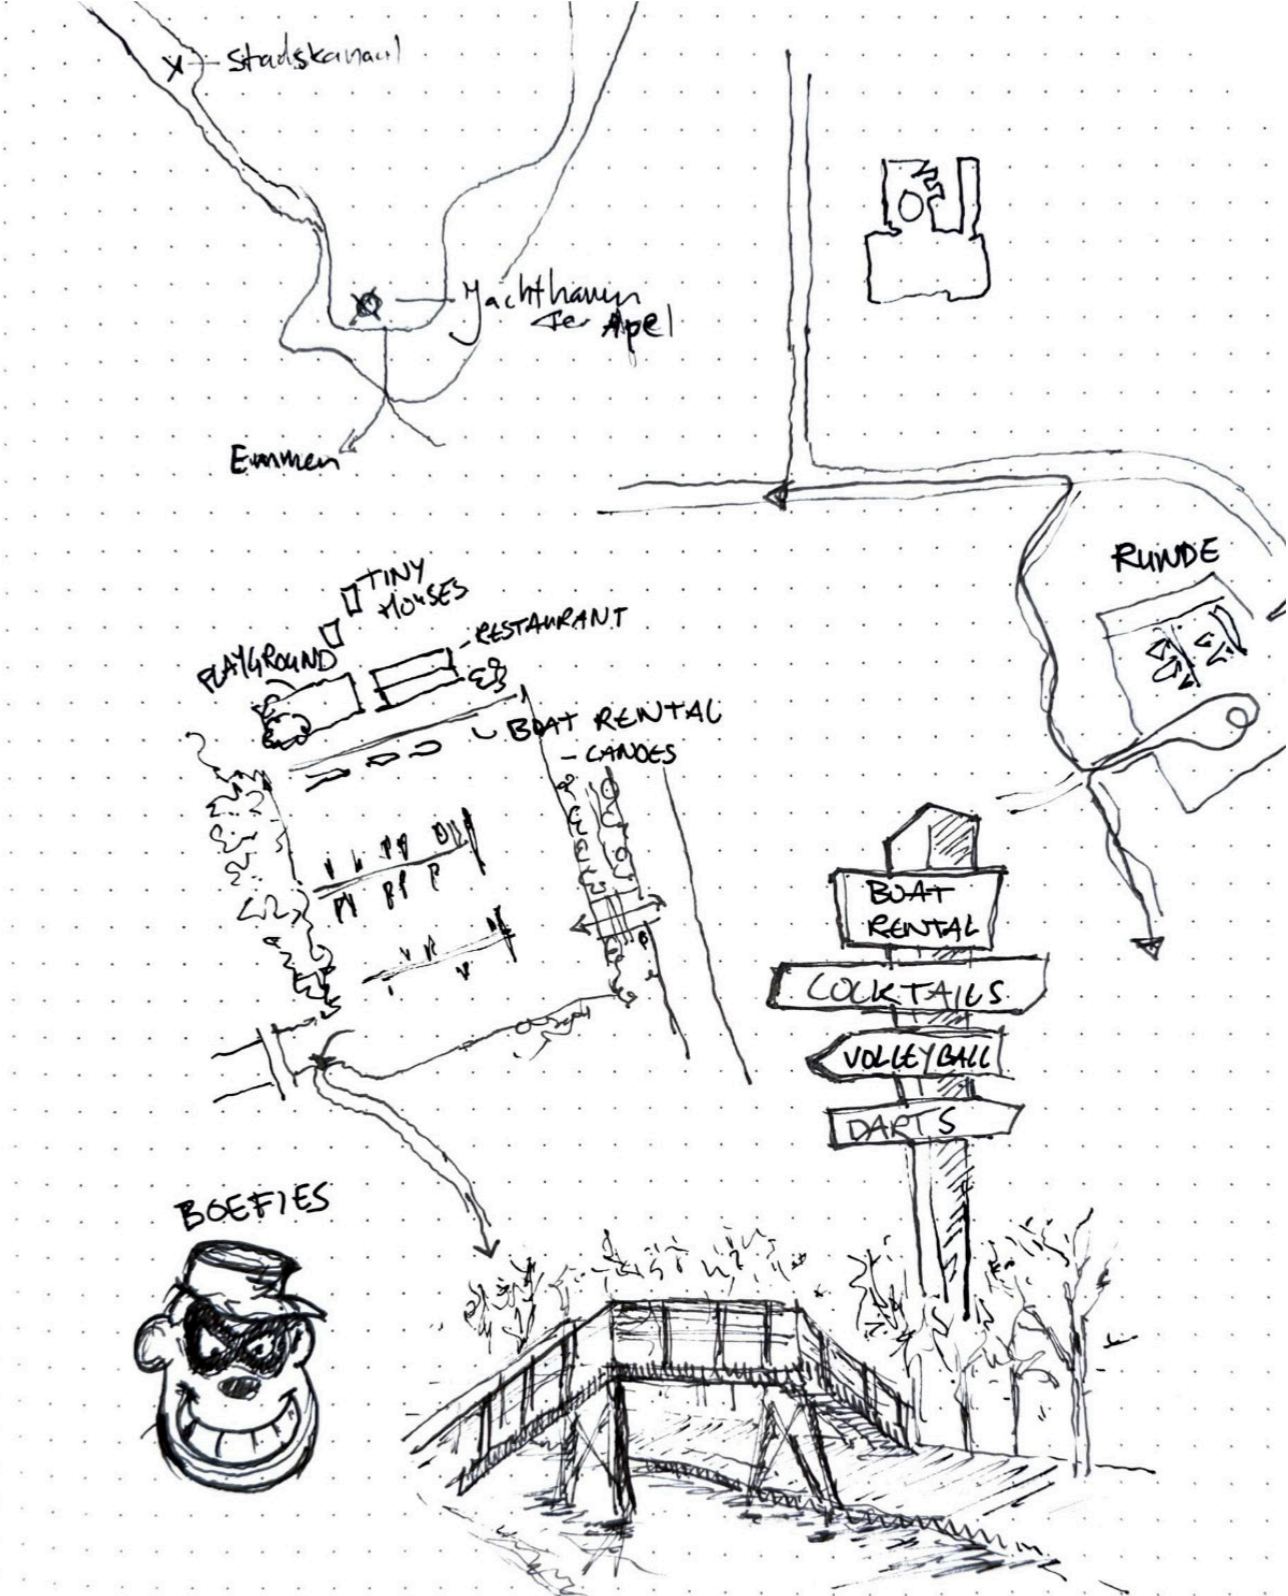 Stadskanaal
Jachthaven
Ter Apel
Emmen
RUNDE
TINY
HOUSES
RESTAURANT
PLAYGROUND
BOAT RENTAL
- CANOES
BOAT
RENTAL
COCKTAILS
VOLLEYBALL
DARTS
BOEFIES